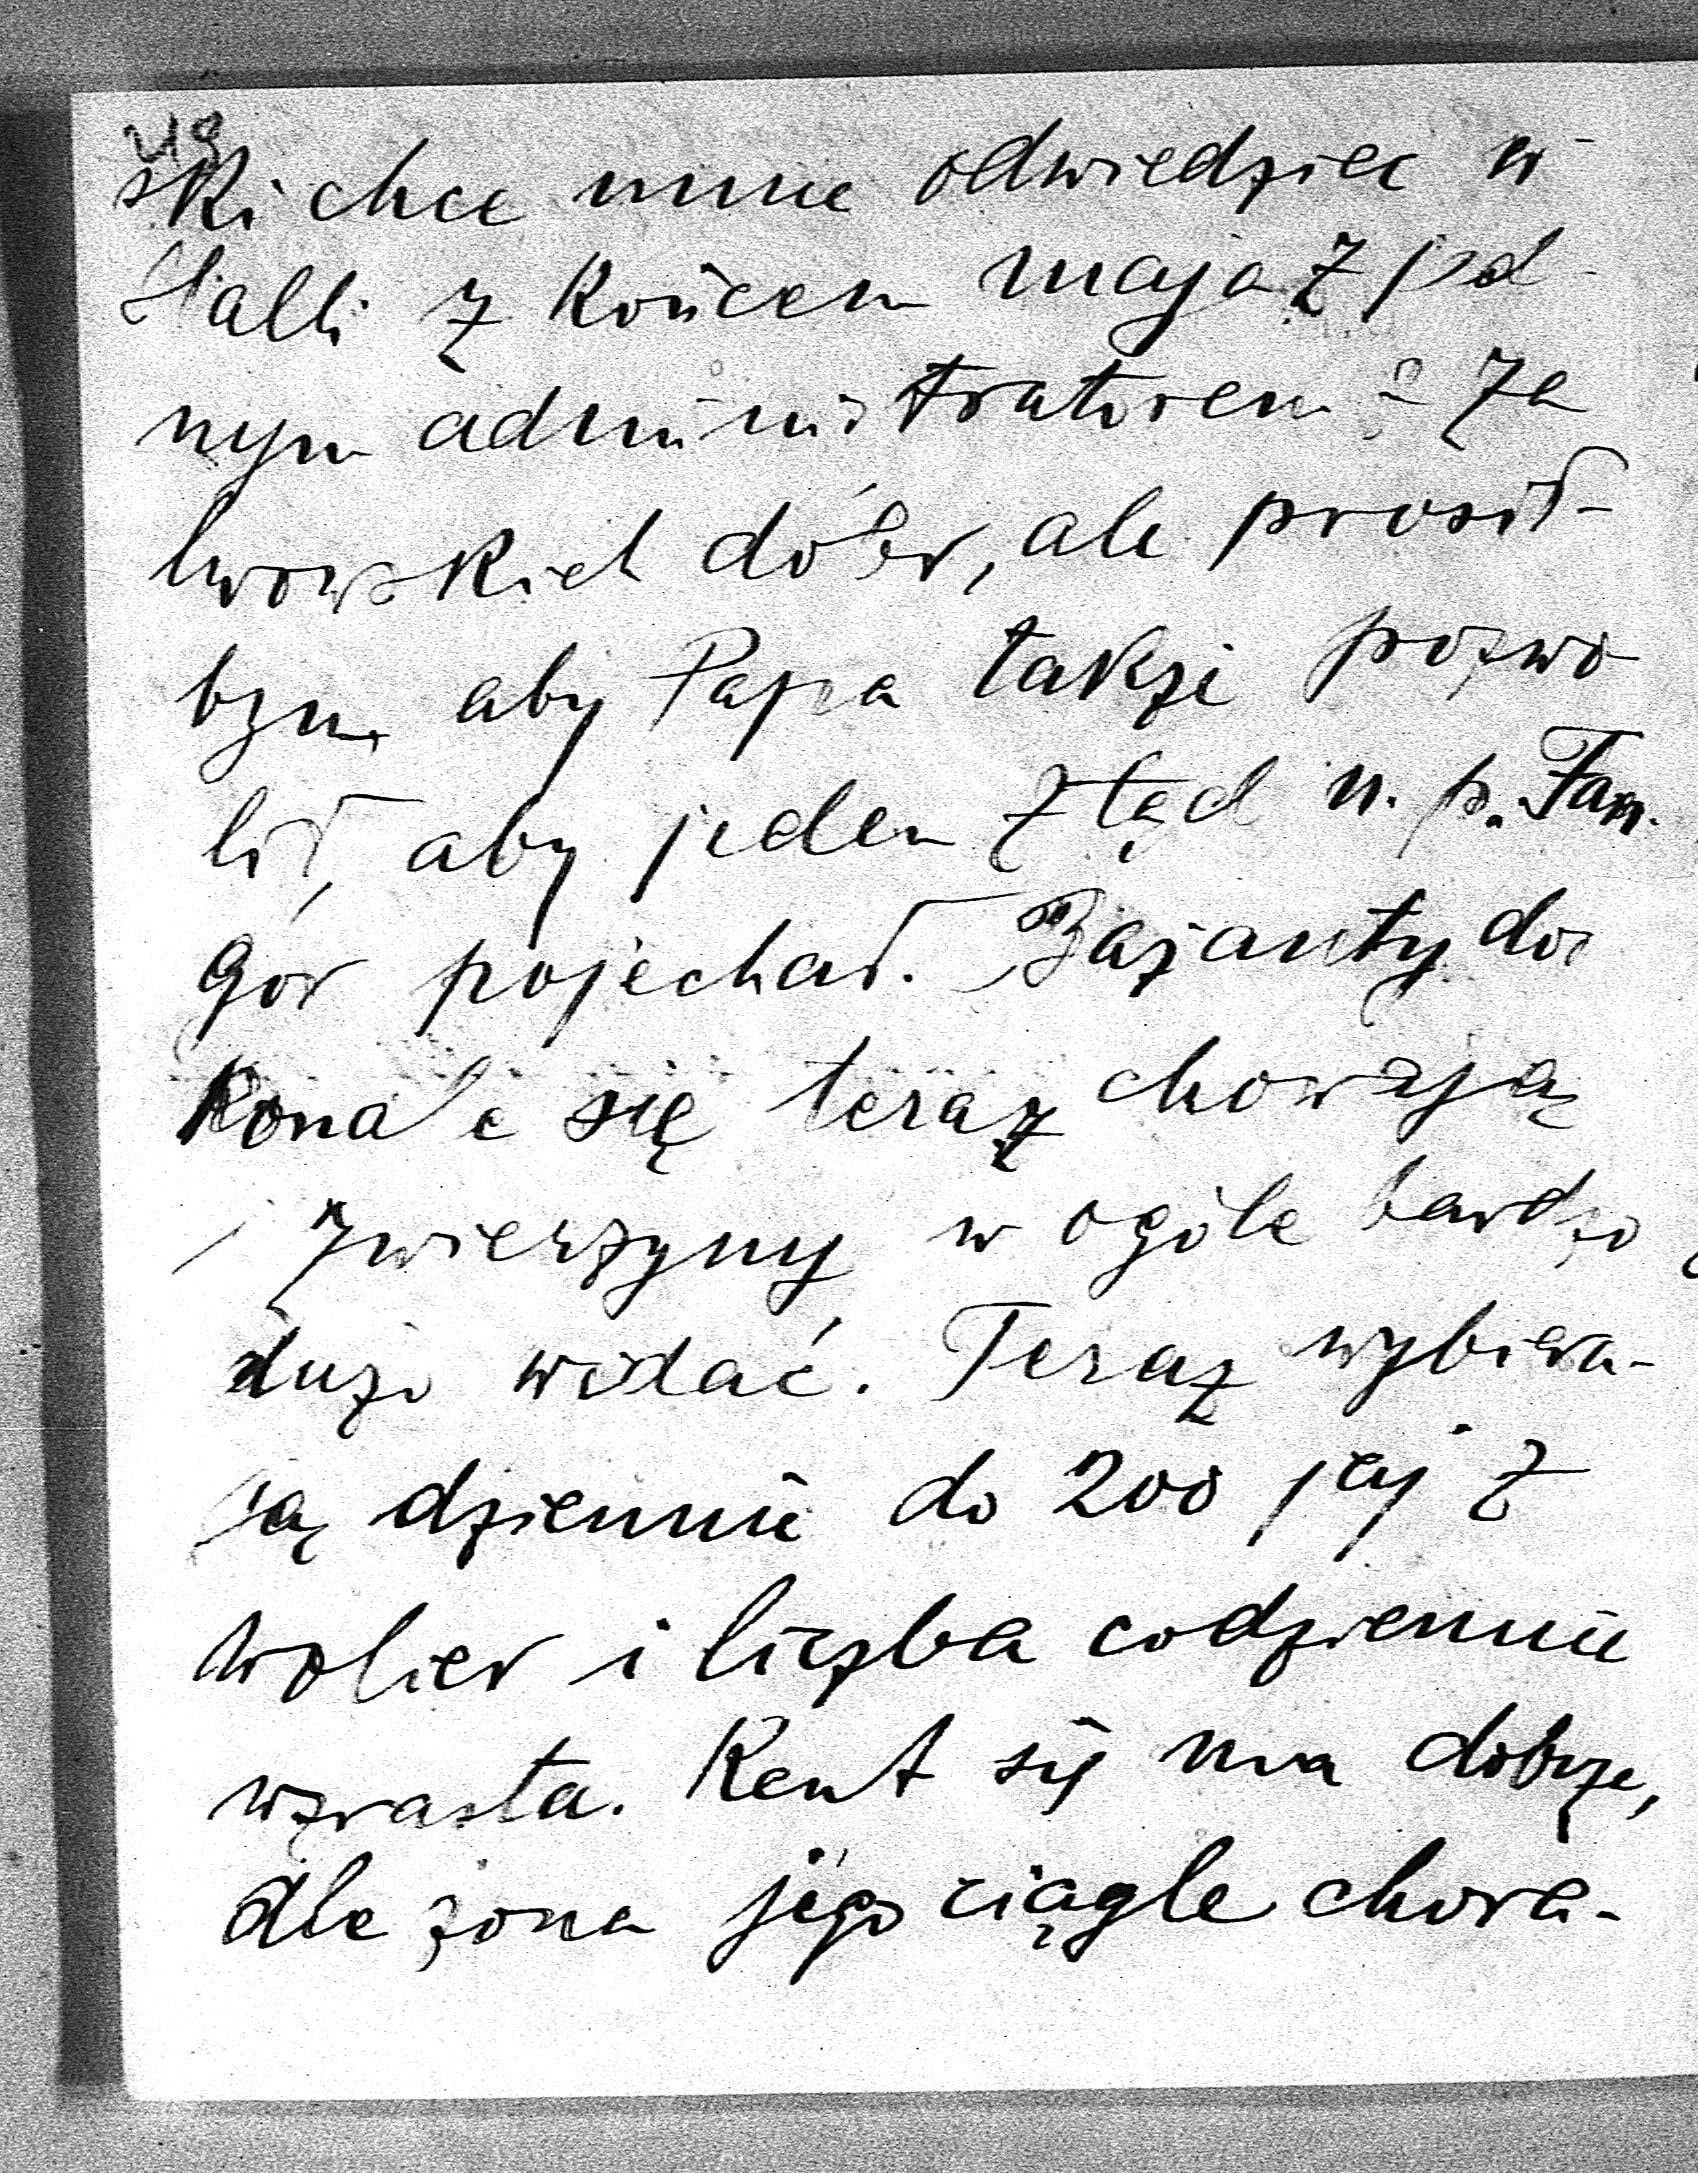 48
ski chce mnie odwiedzieć w
Halli z końcem maja z jed
nym administratorem z Za
lwowskich dóbr, ale prosił-
bym, aby Papa takze pozwo
lił, aby jeden ztąd n. p.
Gór pojechał. Bażanty dos
konale się teraz chowają
i zwierzyny w ogóle bardzo
dużo widać. Teraz wybiera-
ją dziennie do 200 jaj z
wolier i liczba codziennie
wzrasta. Kent się ma dobrze,
ale żona jego ciągle chora-